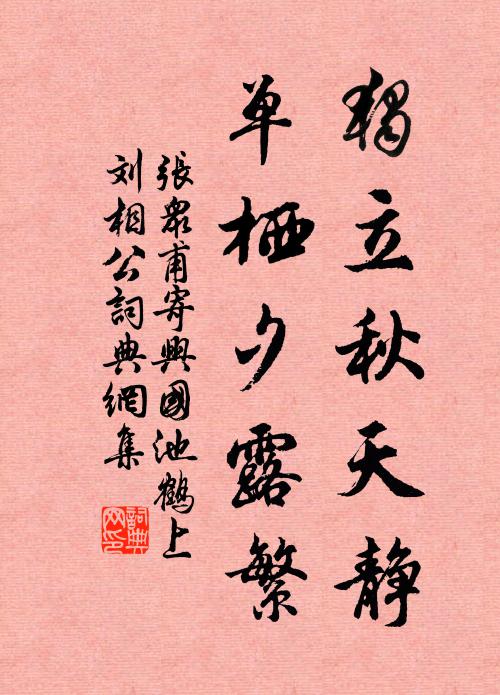 獨立秋天静
单栖夕露繁
張眾甫寄興國池鶴上
刘相公詞典網集
詞典网印